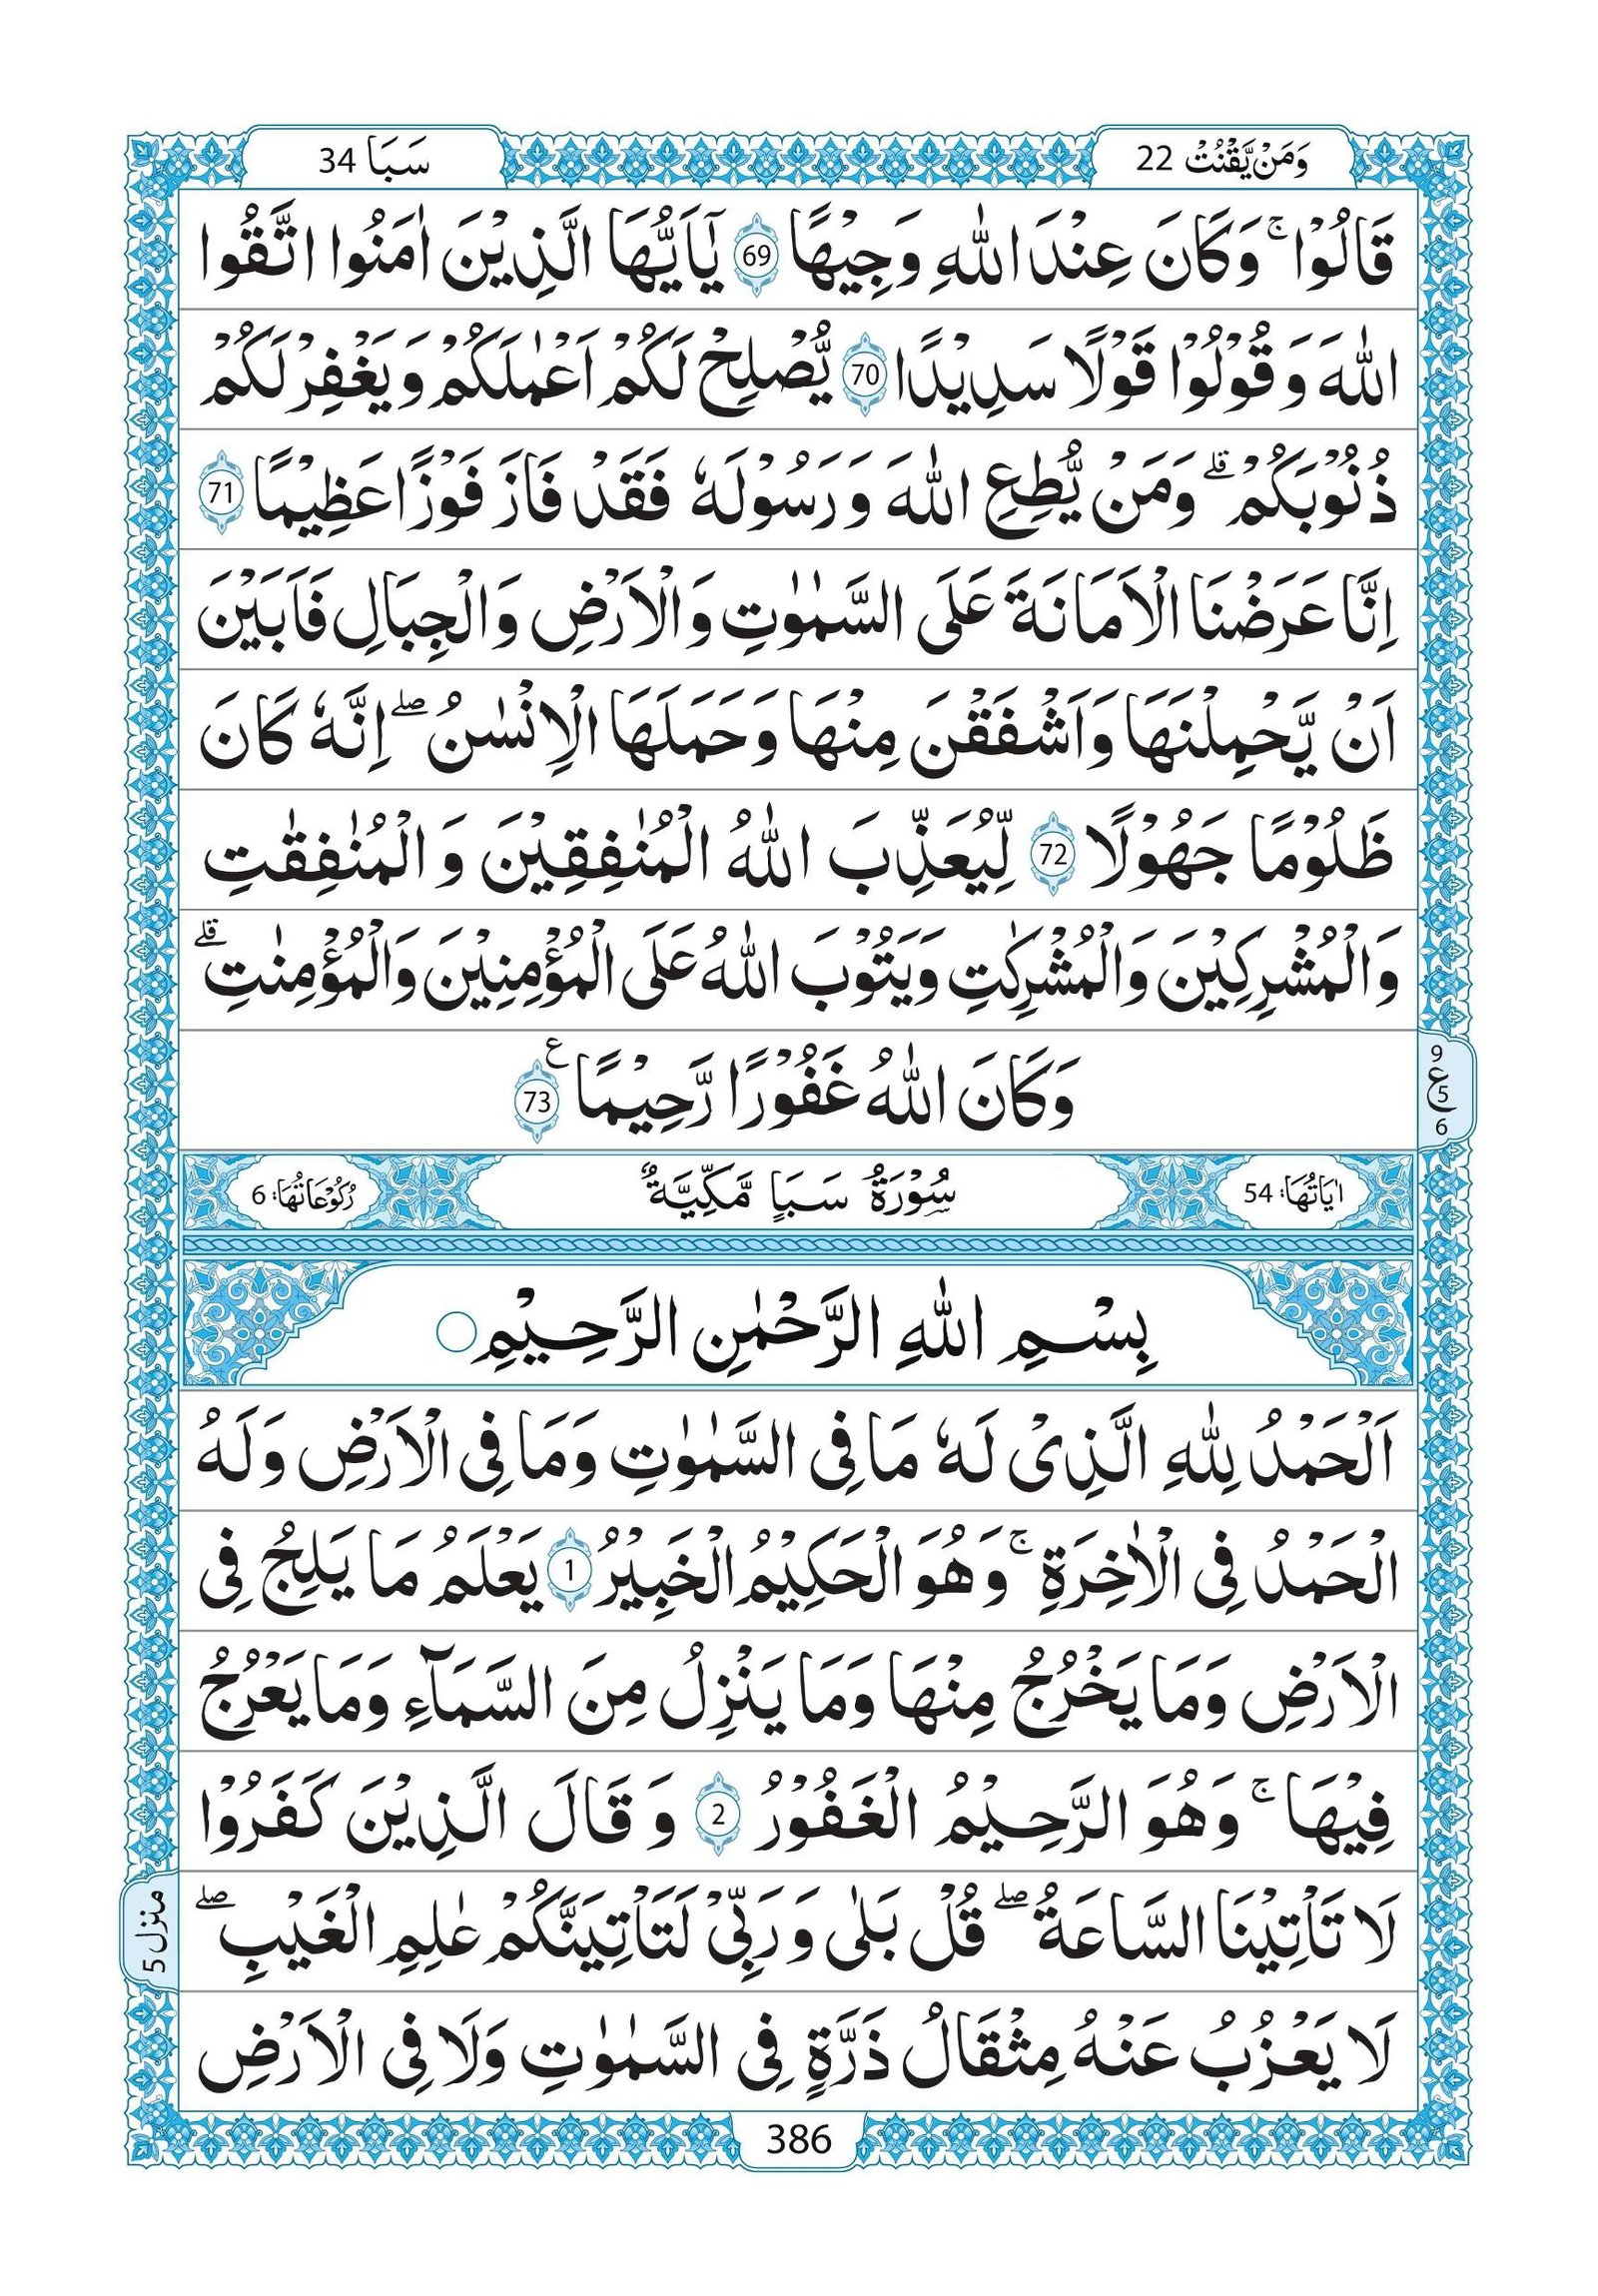 وَمَنْ يَّقْنُتْ 22
سَبَا 34
قَالُوْا ۚ وَكَانَ عِنْدَ اللّٰهِ وَجِيْهًا 69 يٰٓاَيُّهَا الَّذِيْنَ اٰمَنُوا اتَّقُوا
اللّٰهَ وَ قُوْلُوْا قَوْلًا سَدِيْدًا 70 يُّصْلِحْ لَكُمْ اَعْمٰلَكُمْ وَ يَغْفِرْ لَكُمْ
ذُنُوْبَكُمْ ۗ وَمَنْ يُّطِعِ اللّٰهَ وَ رَسُوْلَهٗ فَقَدْ فَازَ فَوْزًا عَظِيْمًا 71
اِنَّا عَرَضْنَا الْاَمَانَةَ عَلَى السَّمٰوٰتِ وَ الْاَرْضِ وَ الْجِبَالِ فَاَبَيْنَ
اَنْ يَّحْمِلْنَهَا وَ اَشْفَقْنَ مِنْهَا وَ حَمَلَهَا الْاِنْسٰنُ ۖ اِنَّهٗ كَانَ
ظَلُوْمًا جَهُوْلًا 72 لِّيُعَذِّبَ اللّٰهُ الْمُنٰفِقِيْنَ وَ الْمُنٰفِقٰتِ
وَ الْمُشْرِكِيْنَ وَ الْمُشْرِكٰتِ وَ يَتُوْبَ اللّٰهُ عَلَى الْمُؤْمِنِيْنَ وَ الْمُؤْمِنٰتِ ۗ
وَ كَانَ اللّٰهُ غَفُوْرًا رَّحِيْمًا ع 73
9
ع 5
6
اٰيَاتُهَا: 54
سُوْرَةُ سَبَاٍ مَّكِّيَّةٌ
رُكُوْعَاتُهَا: 6
بِسْمِ اللّٰهِ الرَّحْمٰنِ الرَّحِيْمِ
اَلْحَمْدُ لِلّٰهِ الَّذِىْ لَهٗ مَا فِى السَّمٰوٰتِ وَمَا فِى الْاَرْضِ وَلَهُ
الْحَمْدُ فِى الْاٰخِرَةِ ۚ وَ هُوَ الْحَكِيْمُ الْخَبِيْرُ 1 يَعْلَمُ مَا يَلِجُ فِى
الْاَرْضِ وَمَا يَخْرُجُ مِنْهَا وَمَا يَنْزِلُ مِنَ السَّمَآءِ وَمَا يَعْرُجُ
فِيْهَا ۚ وَهُوَ الرَّحِيْمُ الْغَفُوْرُ 2 وَ قَالَ الَّذِيْنَ كَفَرُوْا
لَا تَاْتِيْنَا السَّاعَةُ ۖ قُلْ بَلٰى وَ رَبِّىْ لَتَاْتِيَنَّكُمْ عٰلِمِ الْغَيْبِ ۖ
منزل 5
لَا يَعْزُبُ عَنْهُ مِثْقَالُ ذَرَّةٍ فِى السَّمٰوٰتِ وَلَا فِى الْاَرْضِ
386